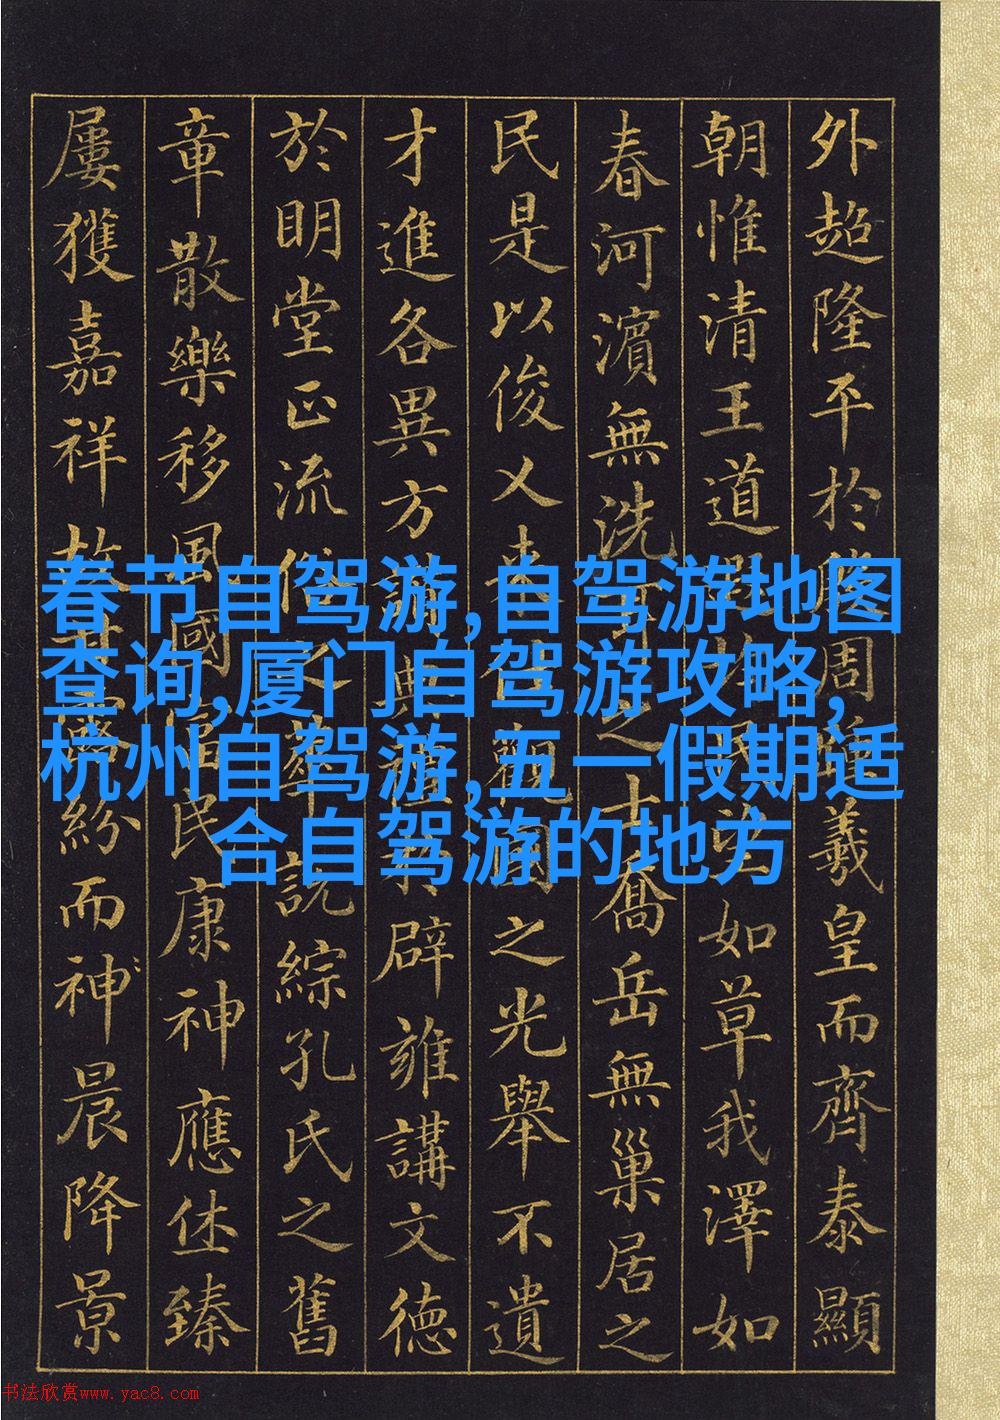 外超隆平於周羲皇而齊泰顯
朝惟清王道如草我澤如
春河濱無洗之士喬岳無巢居之
民是以俊乂來觀國之光舉不遺
才進各異方辟雍講文德
於明堂正流俗之華說綜孔氏之舊
章散樂移風國富民康神應休臻
屢獲嘉祥故紛而神晨降景
春节自驾游,自驾游地图
查询,厦门自驾游攻略,
杭州自驾游,五一假期适
合自驾游的地方
书法欣赏www.yac8.com